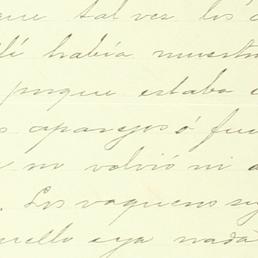 que tal vez los
había muestra
porque estaba
aparejos ó fue
no volvió ni a
. Los vaqueros
ello eya nada